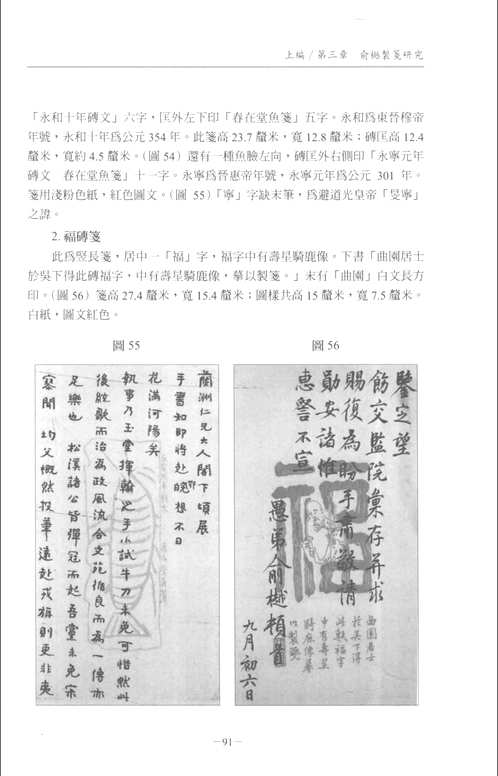 上編 / 第三章　俞樾製箋研究
「永和十年磚文」六字，匡外左下印「春在堂魚箋」五字。永和爲東晉穆帝
年號，永和十年爲公元 354 年。此箋高 23.7 釐米，寬 12.8 釐米；磚匡高 12.4
釐米，寬約 4.5 釐米。（圖 54）還有一種魚臉左向，磚匡外右側印「永寧元年
磚文　春在堂魚箋」十一字。永寧爲晉惠帝年號，永寧元年爲公元 301 年。
箋用淺粉色紙，紅色圖文。（圖 55）「寧」字缺末筆，爲避道光皇帝「旻寧」
之諱。
2. 福磚箋
此爲竪長箋，居中一「福」字，福字中有壽星騎鹿像。下書「曲園居士
於吳下得此磚福字，中有壽星騎鹿像，摹以製箋。」末有「曲園」白文長方
印。（圖 56）箋高 27.4 釐米，寬 15.4 釐米；圖樣共高 15 釐米，寬 7.5 釐米。
白紙，圖文紅色。
圖 55
圖 56
蘭洲仁兄大人閣下頃展
手書知即將赴
花滿河陽矣
執事乃玉堂揮翰之手小試牛刀未免可惜然以
後絃歌而治爲政風流合文苑循良而爲一傳亦
足樂也　松溪諸公皆彈冠而起吾黨未免寂
寞聞　均父慨然投筆遠赴戎旃則更非夷
鑒定望
飭交監院彙存并求
賜復為盼手肅敬請
勛安諸惟
惠詧不宣
愚弟俞樾頓首
九月初六日
曲園居士
於吳下得
此磚福字
中有壽星
騎鹿像摹
以製箋
福
－91－